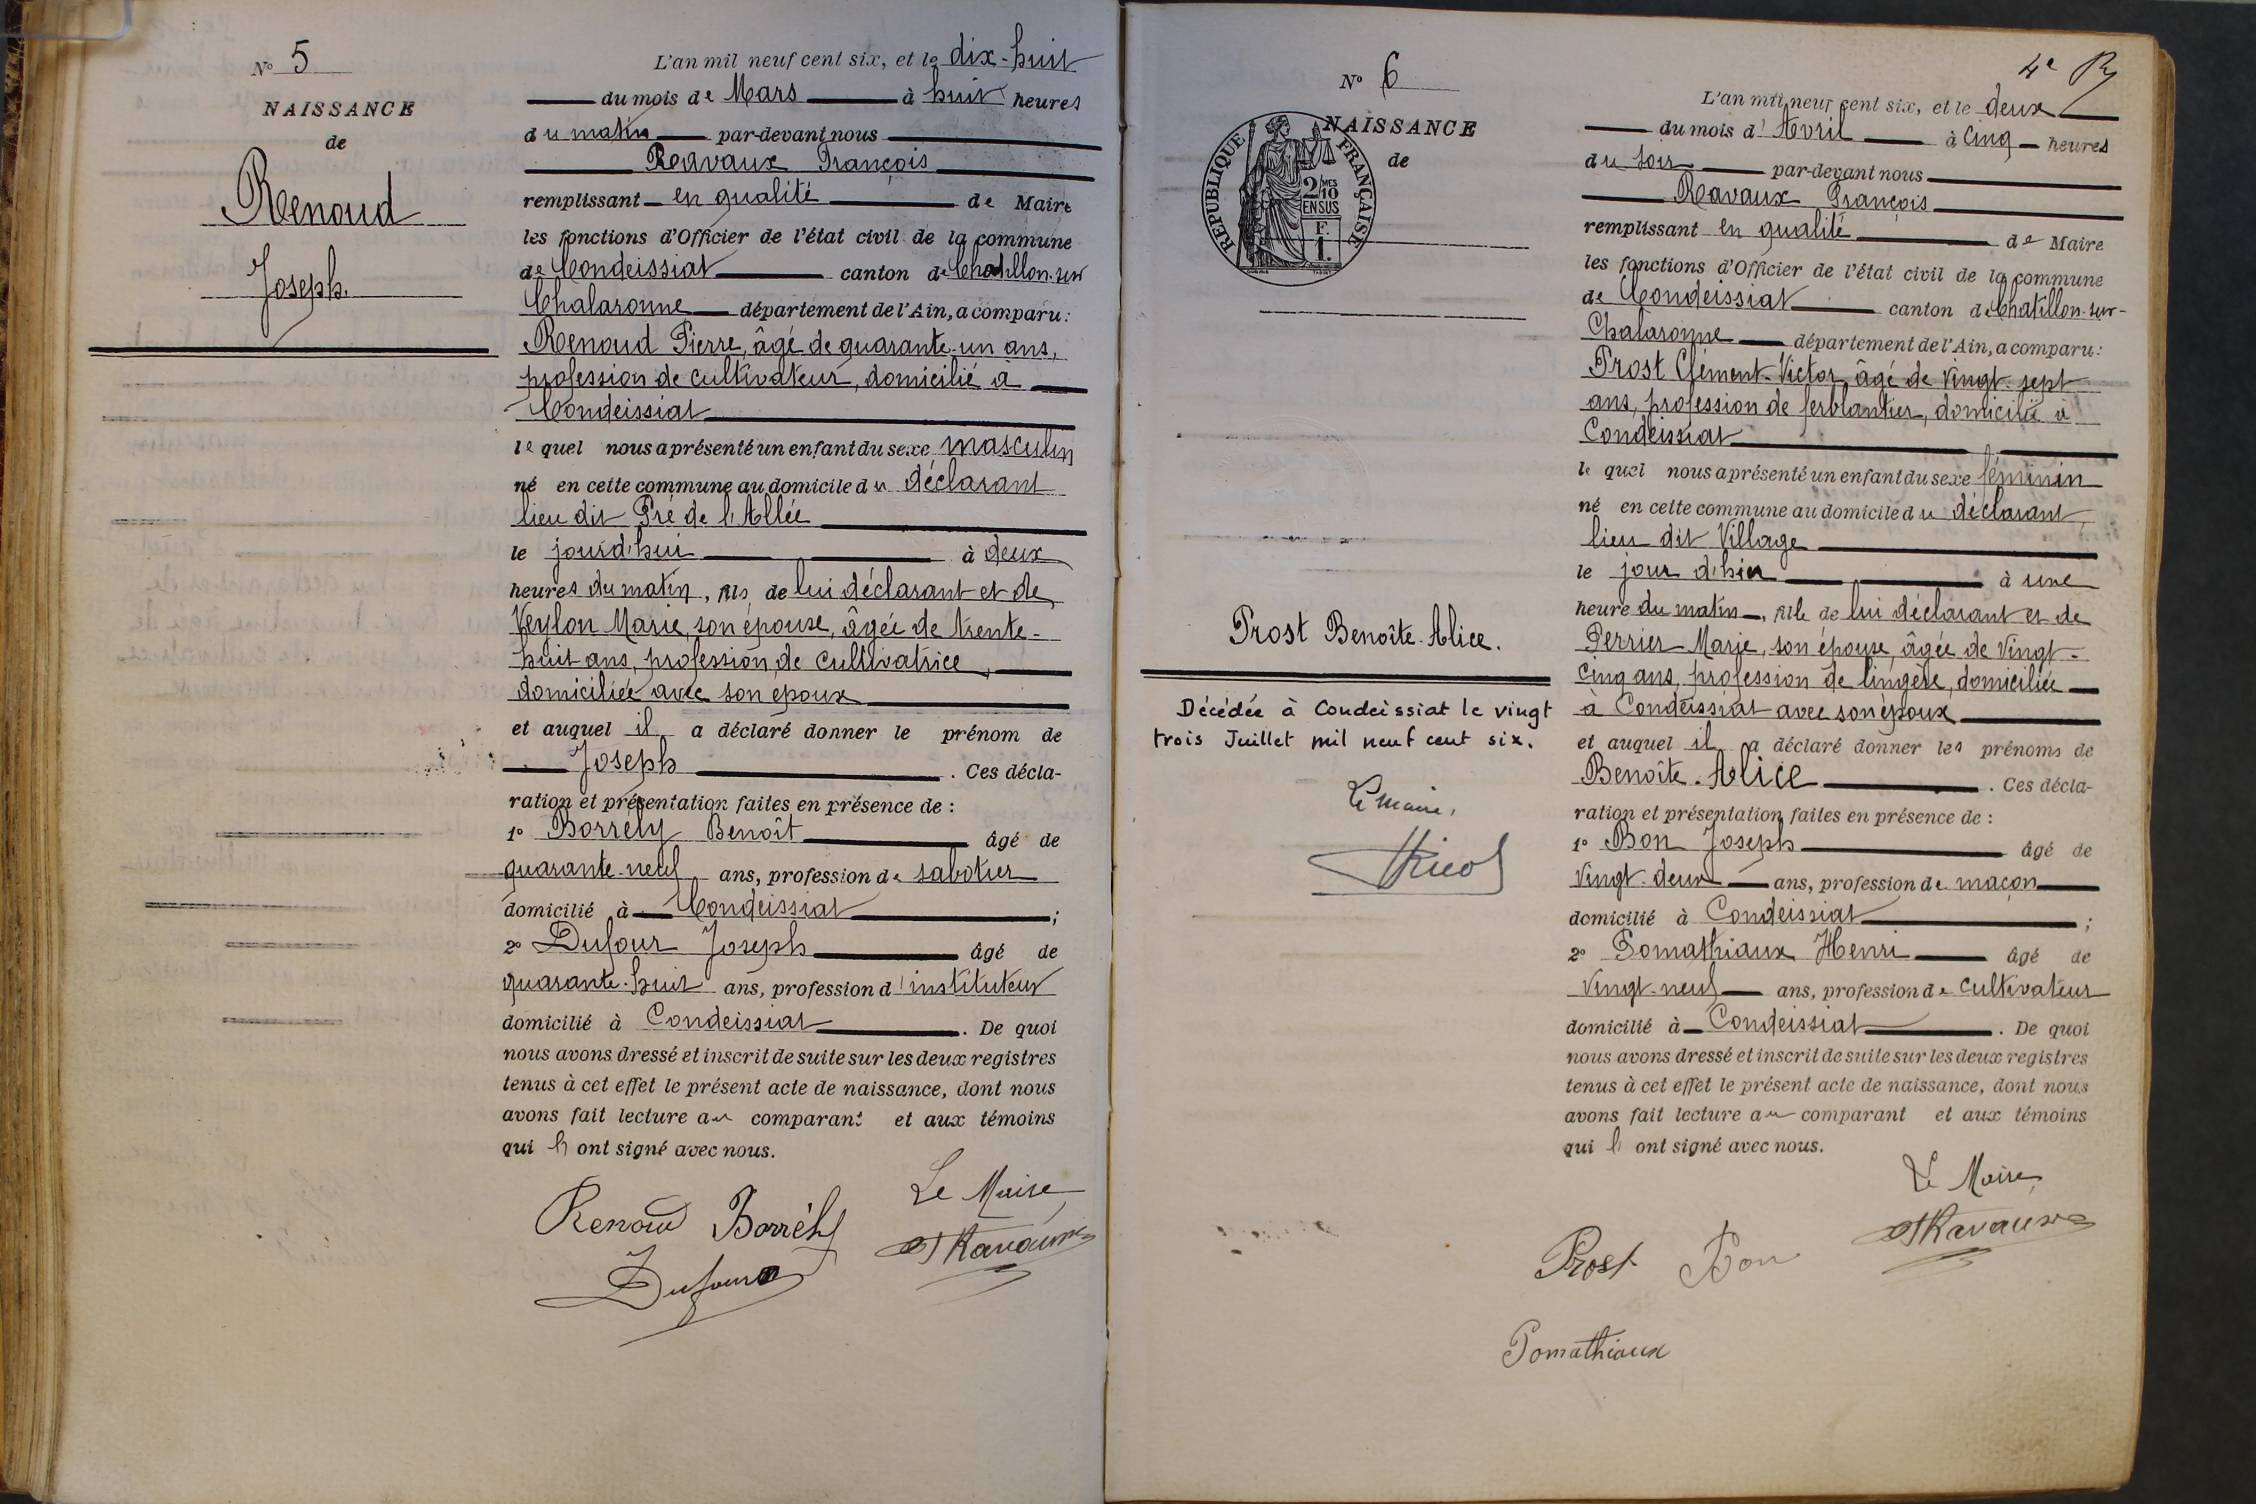 N° 5
NAISSANCE
de
Renoud
Joseph.
L'an mil neuf cent six, et le dix-huit
du mois de Mars à huit heures
du matin par-devant nous
Ravaux François
remplissant en qualité de Maire
les fonctions d'Officier de l'état civil de la commune
de Condeissiat canton de Chatillon-sur
Chalaronne département de l'Ain, a comparu:
Renoud Pierre, âgé de quarante-un ans,
profession de cultivateur, domicilié à
Condeissiat
lequel nous a présenté un enfant du sexe masculin
né en cette commune au domicile du déclarant
lieu dit Pré de l'Allée
le jourd'hui à deux
heures du matin, fils de lui déclarant et de
Veylon Marie, son épouse, âgée de trente-
huit ans, profession de cultivatrice,
domiciliée avec son époux
et auquel il a déclaré donner le prénom de
Joseph. Ces décla-
ration et présentation faites en présence de :
1° Borrély Benoît âgé de
quarante-neuf ans, profession de sabotier
domicilié à Condeissiat ;
2° Dufour Joseph âgé de
quarante-huit ans, profession d'instituteur
domicilié à Condeissiat. De quoi
nous avons dressé et inscrit de suite sur les deux registres
tenus à cet effet le présent acte de naissance, dont nous
avons fait lecture au comparant et aux témoins
qui ont signé avec nous.
Le Maire
Renoud Borrély Ravaux
Dufour
4e
N° 6
NAISSANCE
de
RÉPUBLIQUE FRANÇAISE
2/MES
10
EN SUS
F.
1.
Prost Benoîte-Alice.
Décédée à Condeissiat le vingt
trois Juillet mil neuf cent six.
Le maire,
L'an mil neuf cent six, et le deux
du mois d'Avril à cinq heures
du soir par-devant nous
Ravaux François
remplissant en qualité de Maire
les fonctions d'Officier de l'état civil de la commune
de Condeissiat canton de Chatillon-sur-
Chalaronne département de l'Ain, a comparu:
Prost Clément-Victor, âgé de vingt-sept
ans, profession de ferblantier, domicilié à
Condeissiat
lequel nous a présenté un enfant du sexe féminin
né en cette commune au domicile du déclarant,
lieu dit Village
le jour d'hier à une
heure du matin, fille de lui déclarant et de
Perrier Marie, son épouse, âgée de vingt-
cinq ans, profession de lingère, domiciliée
à Condeissiat avec son époux
et auquel il a déclaré donner les prénoms de
Benoîte-Alice. Ces décla-
ration et présentation faites en présence de :
1° Bon Joseph âgé de
vingt-deux ans, profession de maçon
domicilié à Condeissiat ;
2° Pomathiaux Henri âgé de
vingt-neuf ans, profession de cultivateur
domicilié à Condeissiat. De quoi
nous avons dressé et inscrit de suite sur les deux registres
tenus à cet effet le présent acte de naissance, dont nous
avons fait lecture au comparant et aux témoins
qui ont signé avec nous.
Le Maire,
Prost Bon Ravaux
Pomathiaux